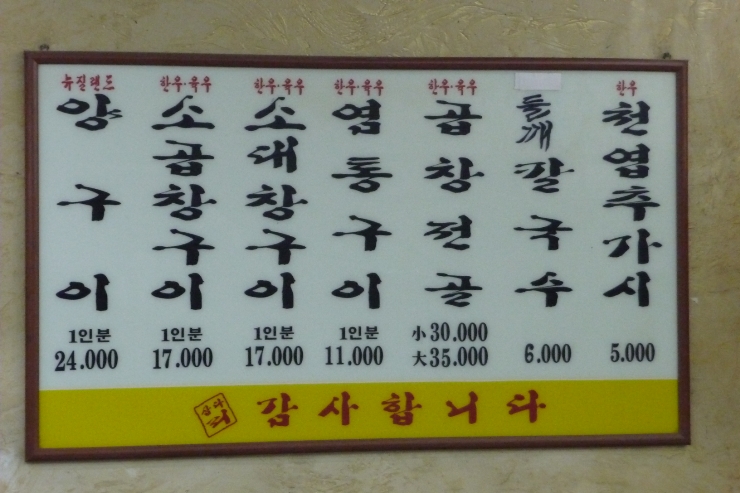 뉴질랜드
양구이
1인분
24.000
한우·육우
소곱창구이
1인분
17.000
한우·육우
소대창구이
1인분
17.000
한우·육우
염통구이
1인분
11.000
한우·육우
곱창전골
小 30.000
大 35.000
들깨칼국수
6.000
한우
천엽추가시
5.000
감사합니다